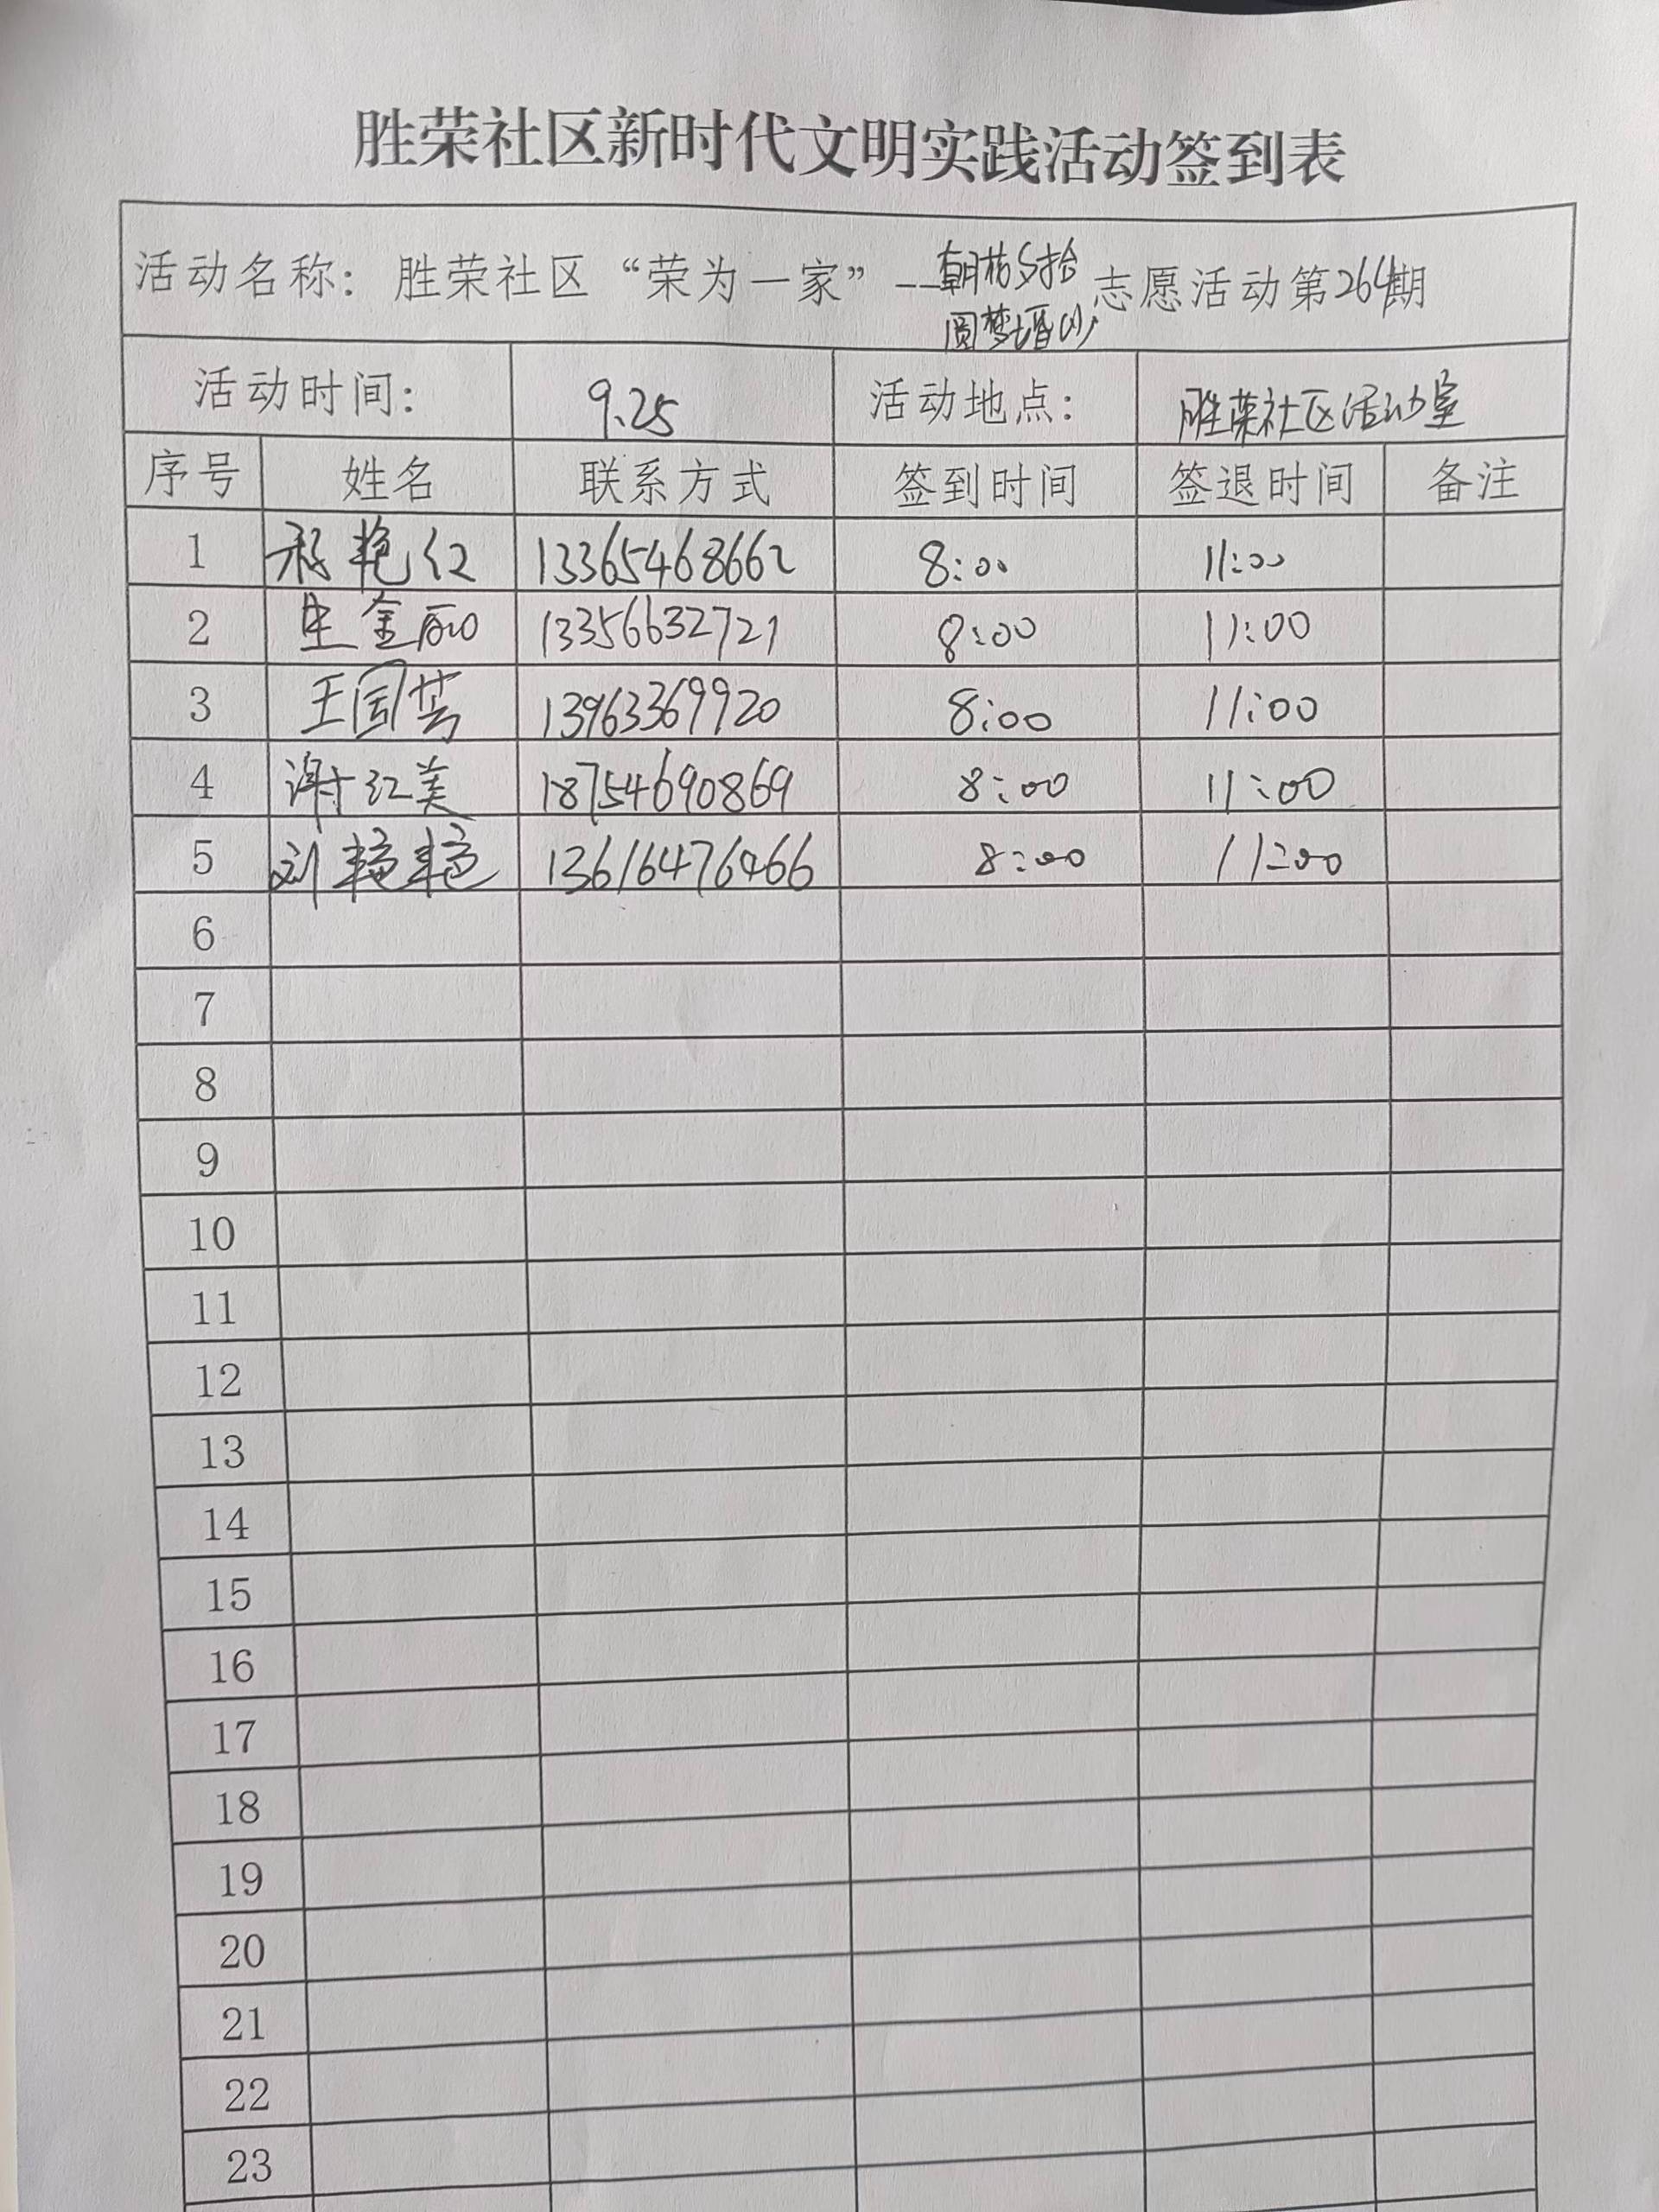 胜荣社区新时代文明实践活动签到表
朝花夕拾
活动名称：胜荣社区“荣为一家”--志愿活动第264期
圆梦婚纱
活动时间： 9.25 活动地点： 胜荣社区活动室
序号 姓名 联系方式 签到时间 签退时间 备注
1 艳红 13365468662 8:00 11:00
2 金 13356632721 8:00 11:00
3 王国芸 13963369920 8:00 11:00
4 谢红美 18754690869 8:00 11:00
5 刘艳艳 13616476466 8:00 11:00
6
7
8
9
10
11
12
13
14
15
16
17
18
19
20
21
22
23